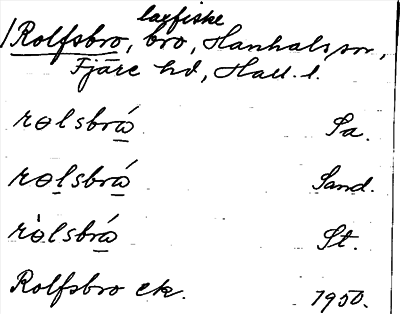 laxfiske
Rolfsbro, bro, Hanhals sn,
Fjäre hd, Hall. l.
rɵlsbrá̲ Sa.
rɵl̲sbrá̲ Sand.
rɵ̀lsbrá̲ St.
Rolfsbro ek. 1950.